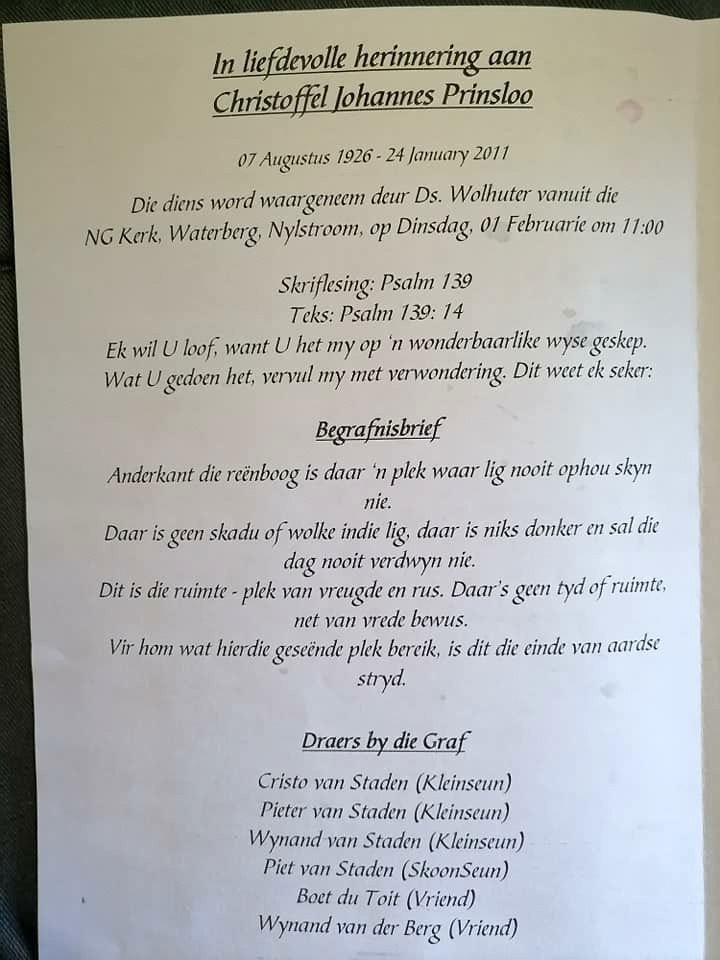 In liefdevolle herinnering aan
Christoffel Johannes Prinsloo
07 Augustus 1926 - 24 January 2011
Die diens word waargeneem deur Ds. Wolhuter vanuit die
NG Kerk, Waterberg, Nylstroom, op Dinsdag, 01 Februarie om 11:00
Skriflesing: Psalm 139
Teks: Psalm 139: 14
Ek wil U loof, want U het my op ‘n wonderbaarlike wyse geskep.
Wat U gedoen het, vervul my met verwondering. Dit weet ek seker:
Begrafnisbrief
Anderkant die reënboog is daar ‘n plek waar lig nooit ophou skyn
nie.
Daar is geen skadu of wolke indie lig, daar is niks donker en sal die
dag nooit verdwyn nie.
Dit is die ruimte - plek van vreugde en rus. Daar’s geen tyd of ruimte,
net van vrede bewus.
Vir hom wat hierdie geseënde plek bereik, is dit die einde van aardse
stryd.
Draers by die Graf
Cristo van Staden (Kleinseun)
Pieter van Staden (Kleinseun)
Wynand van Staden (Kleinseun)
Piet van Staden (SkoonSeun)
Boet du Toit (Vriend)
Wynand van der Berg (Vriend)